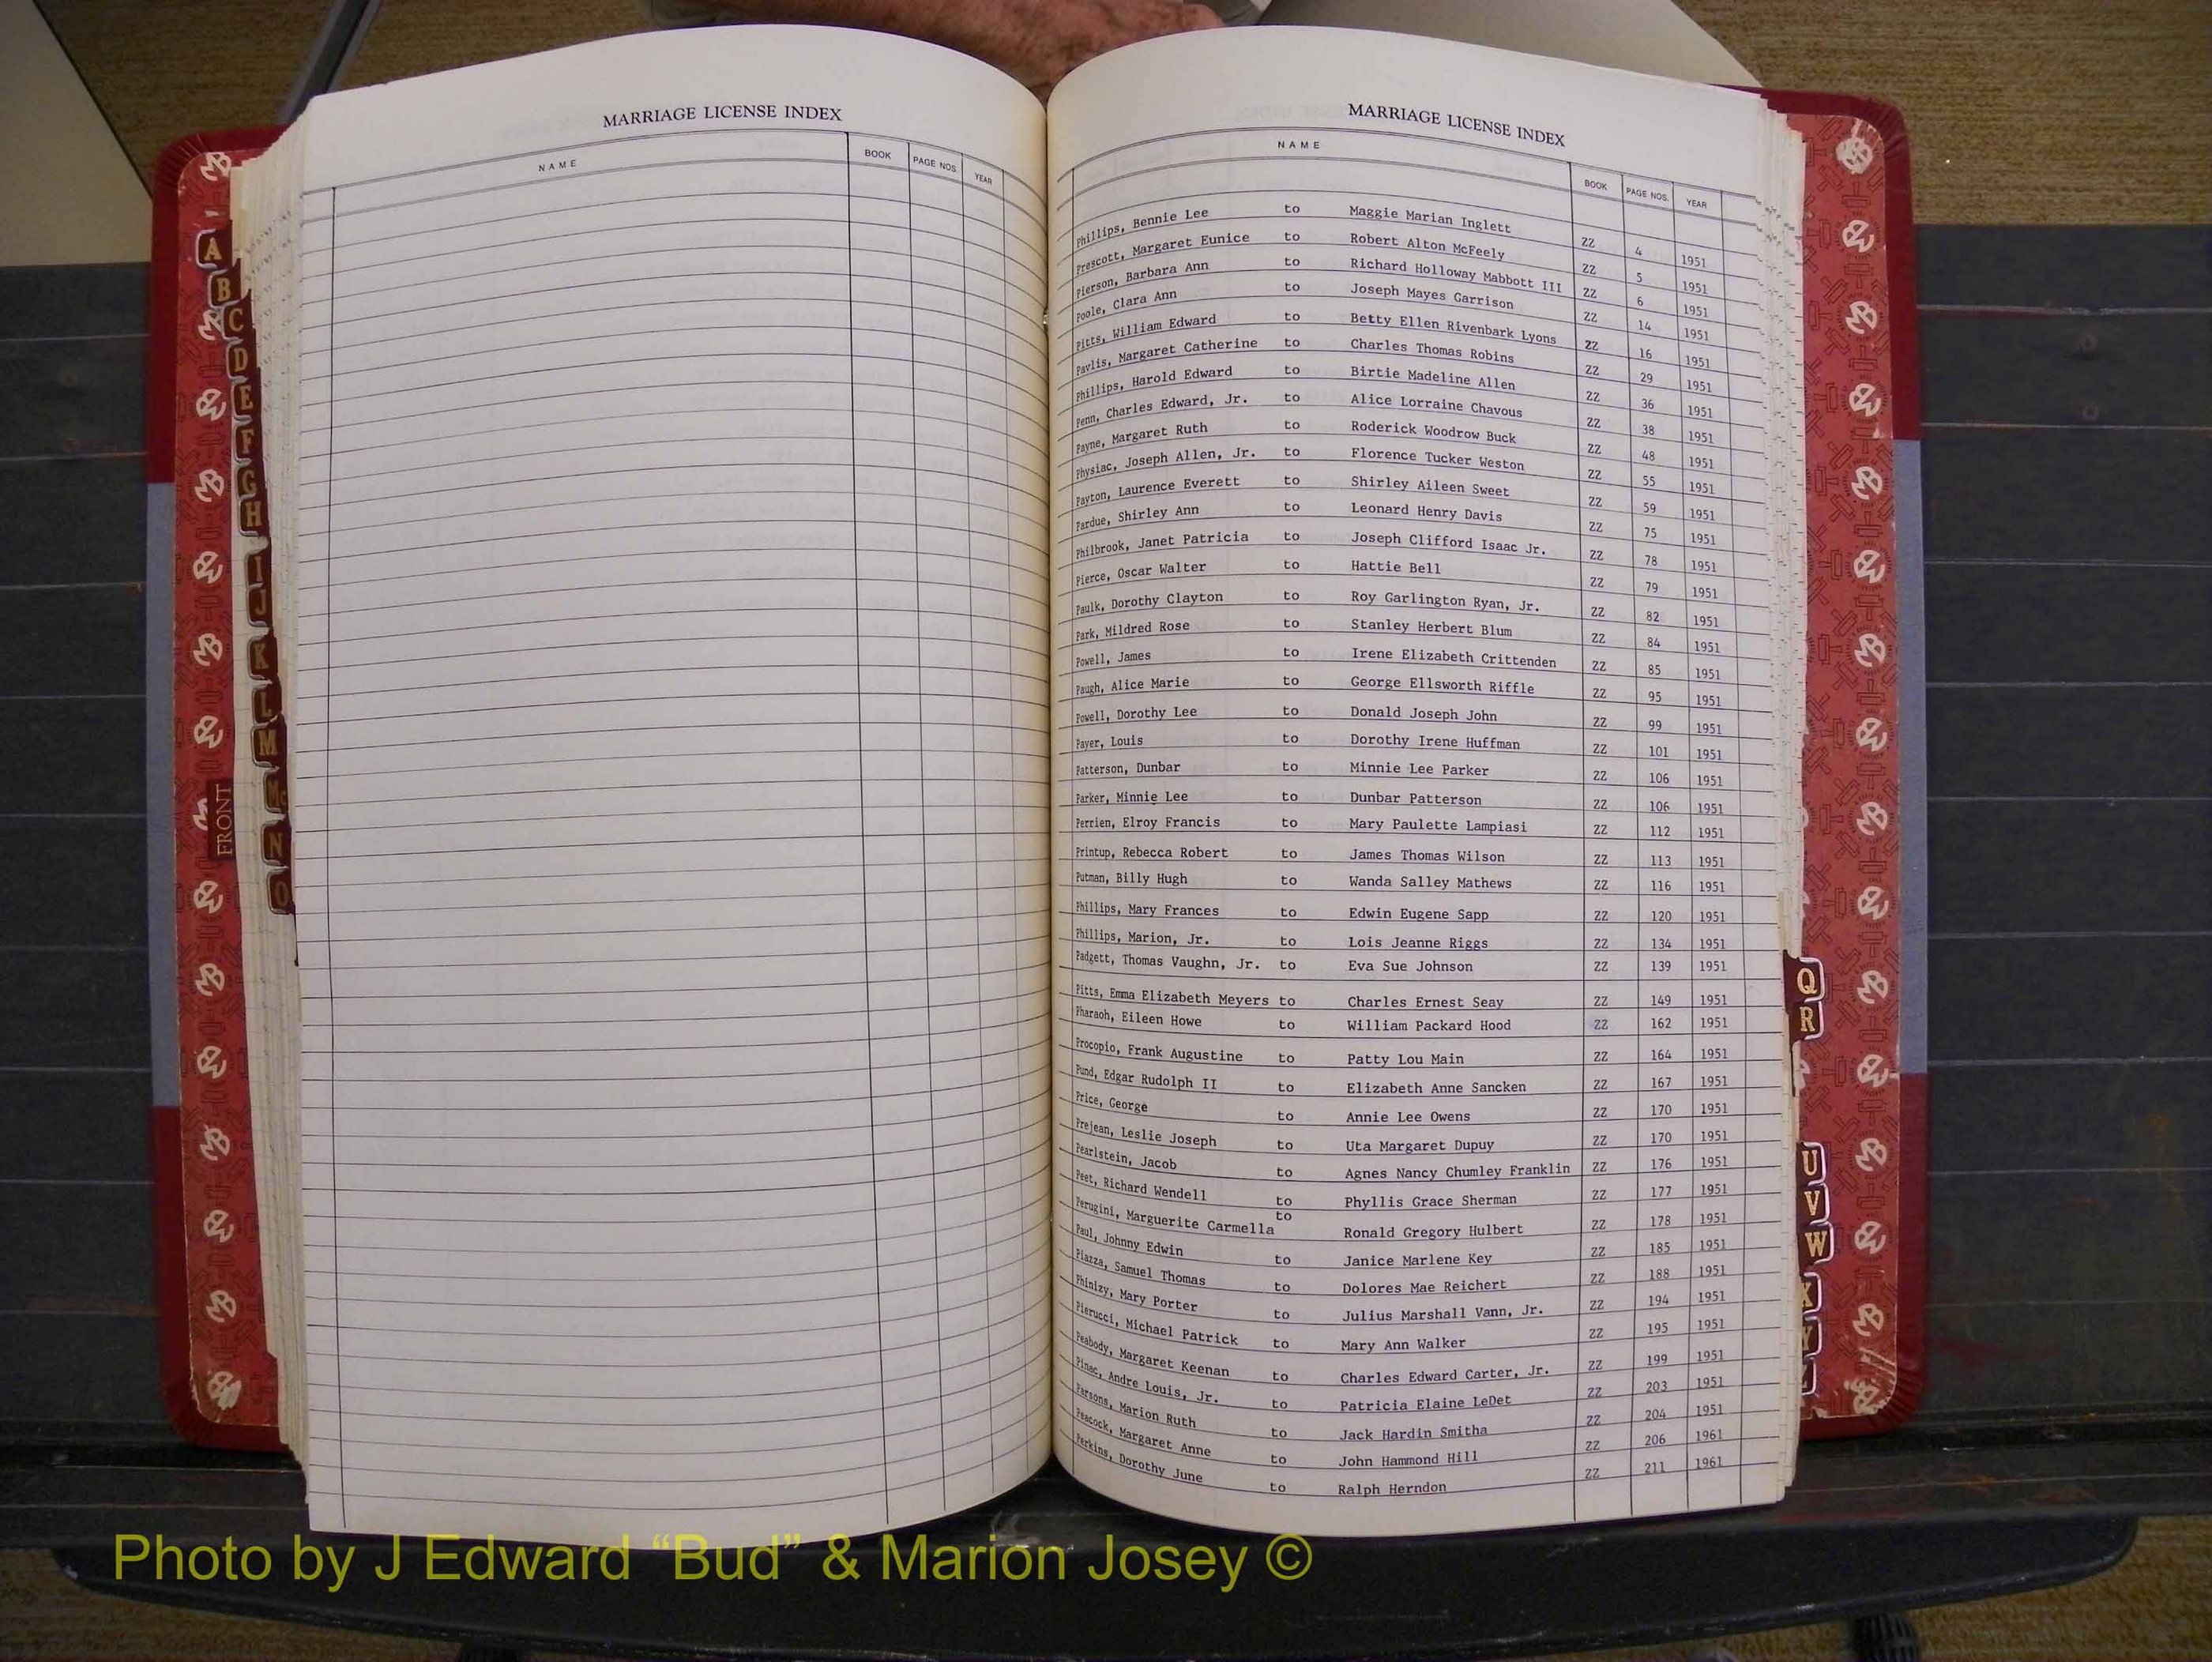 MARRIAGE LICENSE INDEX
NAME BOOK PAGE NOS. YEAR
A
B
C
D
E
F
G
H
I
J
K
L
M
Mc
N
O
FRONT
MARRIAGE LICENSE INDEX
NAME BOOK PAGE NOS. YEAR
Phillips, Bennie Lee to Maggie Marian Inglett ZZ 4 1951
Prescott, Margaret Eunice to Robert Alton McFeely ZZ 5 1951
Pierson, Barbara Ann to Richard Holloway Mabbott III ZZ 6 1951
Poole, Clara Ann to Joseph Mayes Garrison ZZ 14 1951
Pitts, William Edward to Betty Ellen Rivenbark Lyons ZZ 16 1951
Pavlis, Margaret Catherine to Charles Thomas Robins ZZ 29 1951
Phillips, Harold Edward to Birtie Madeline Allen ZZ 36 1951
Penn, Charles Edward, Jr. to Alice Lorraine Chavous ZZ 38 1951
Payne, Margaret Ruth to Roderick Woodrow Buck ZZ 48 1951
Physiac, Joseph Allen, Jr. to Florence Tucker Weston ZZ 55 1951
Payton, Laurence Everett to Shirley Aileen Sweet ZZ 59 1951
Pardue, Shirley Ann to Leonard Henry Davis ZZ 75 1951
Philbrook, Janet Patricia to Joseph Clifford Isaac Jr. ZZ 78 1951
Pierce, Oscar Walter to Hattie Bell ZZ 79 1951
Paulk, Dorothy Clayton to Roy Garlington Ryan, Jr. ZZ 82 1951
Park, Mildred Rose to Stanley Herbert Blum ZZ 84 1951
Powell, James to Irene Elizabeth Crittenden ZZ 85 1951
Paugh, Alice Marie to George Ellsworth Riffle ZZ 95 1951
Powell, Dorothy Lee to Donald Joseph John ZZ 99 1951
Payer, Louis to Dorothy Irene Huffman ZZ 101 1951
Patterson, Dunbar to Minnie Lee Parker ZZ 106 1951
Parker, Minnie Lee to Dunbar Patterson ZZ 106 1951
Perrien, Elroy Francis to Mary Paulette Lampiasi ZZ 112 1951
Printup, Rebecca Robert to James Thomas Wilson ZZ 113 1951
Putman, Billy Hugh to Wanda Salley Mathews ZZ 116 1951
Phillips, Mary Frances to Edwin Eugene Sapp ZZ 120 1951
Phillips, Marion, Jr. to Lois Jeanne Riggs ZZ 134 1951
Padgett, Thomas Vaughn, Jr. to Eva Sue Johnson ZZ 139 1951
Pitts, Emma Elizabeth Meyers to Charles Ernest Seay ZZ 149 1951
Pharaoh, Eileen Howe to William Packard Hood ZZ 162 1951
Procopio, Frank Augustine to Patty Lou Main ZZ 164 1951
Pund, Edgar Rudolph II to Elizabeth Anne Sancken ZZ 167 1951
Price, George to Annie Lee Owens ZZ 170 1951
Prejean, Leslie Joseph to Uta Margaret Dupuy ZZ 170 1951
Pearlstein, Jacob to Agnes Nancy Chumley Franklin ZZ 176 1951
Peet, Richard Wendell to Phyllis Grace Sherman ZZ 177 1951
Perugini, Marguerite Carmella to Ronald Gregory Hulbert ZZ 178 1951
Paul, Johnny Edwin to Janice Marlene Key ZZ 185 1951
Piazza, Samuel Thomas to Dolores Mae Reichert ZZ 188 1951
Phinizy, Mary Porter to Julius Marshall Vann, Jr. ZZ 194 1951
Pierucci, Michael Patrick to Mary Ann Walker ZZ 195 1951
Peabody, Margaret Keenan to Charles Edward Carter, Jr. ZZ 199 1951
Pinac, Andre Louis, Jr. to Patricia Elaine LeDet ZZ 203 1951
Parsons, Marion Ruth to Jack Hardin Smitha ZZ 204 1951
Peacock, Margaret Anne to John Hammond Hill ZZ 206 1961
Perkins, Dorothy June to Ralph Herndon ZZ 211 1961
Q
R
U
V
W
X
Y
Photo by J Edward “Bud” & Marion Josey ©